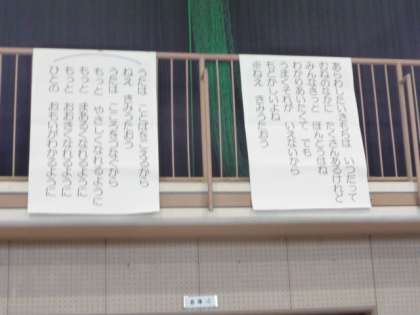 あらわしたいきもちは いつだって
むねのなかに たくさんあるけれど
みんなきっと ほんとうはね
わかりあいたくて でも
うまくそれが いえないから
もどかしいよね
きみうたおう
うたは ことばをこえるから
ねえ きみうたおう
うたは こころをつなぐから
もっと やさしくなれるように
もっと まあるくなれるように
もっと おおきくなれるように
ひとの おもいがわかるように